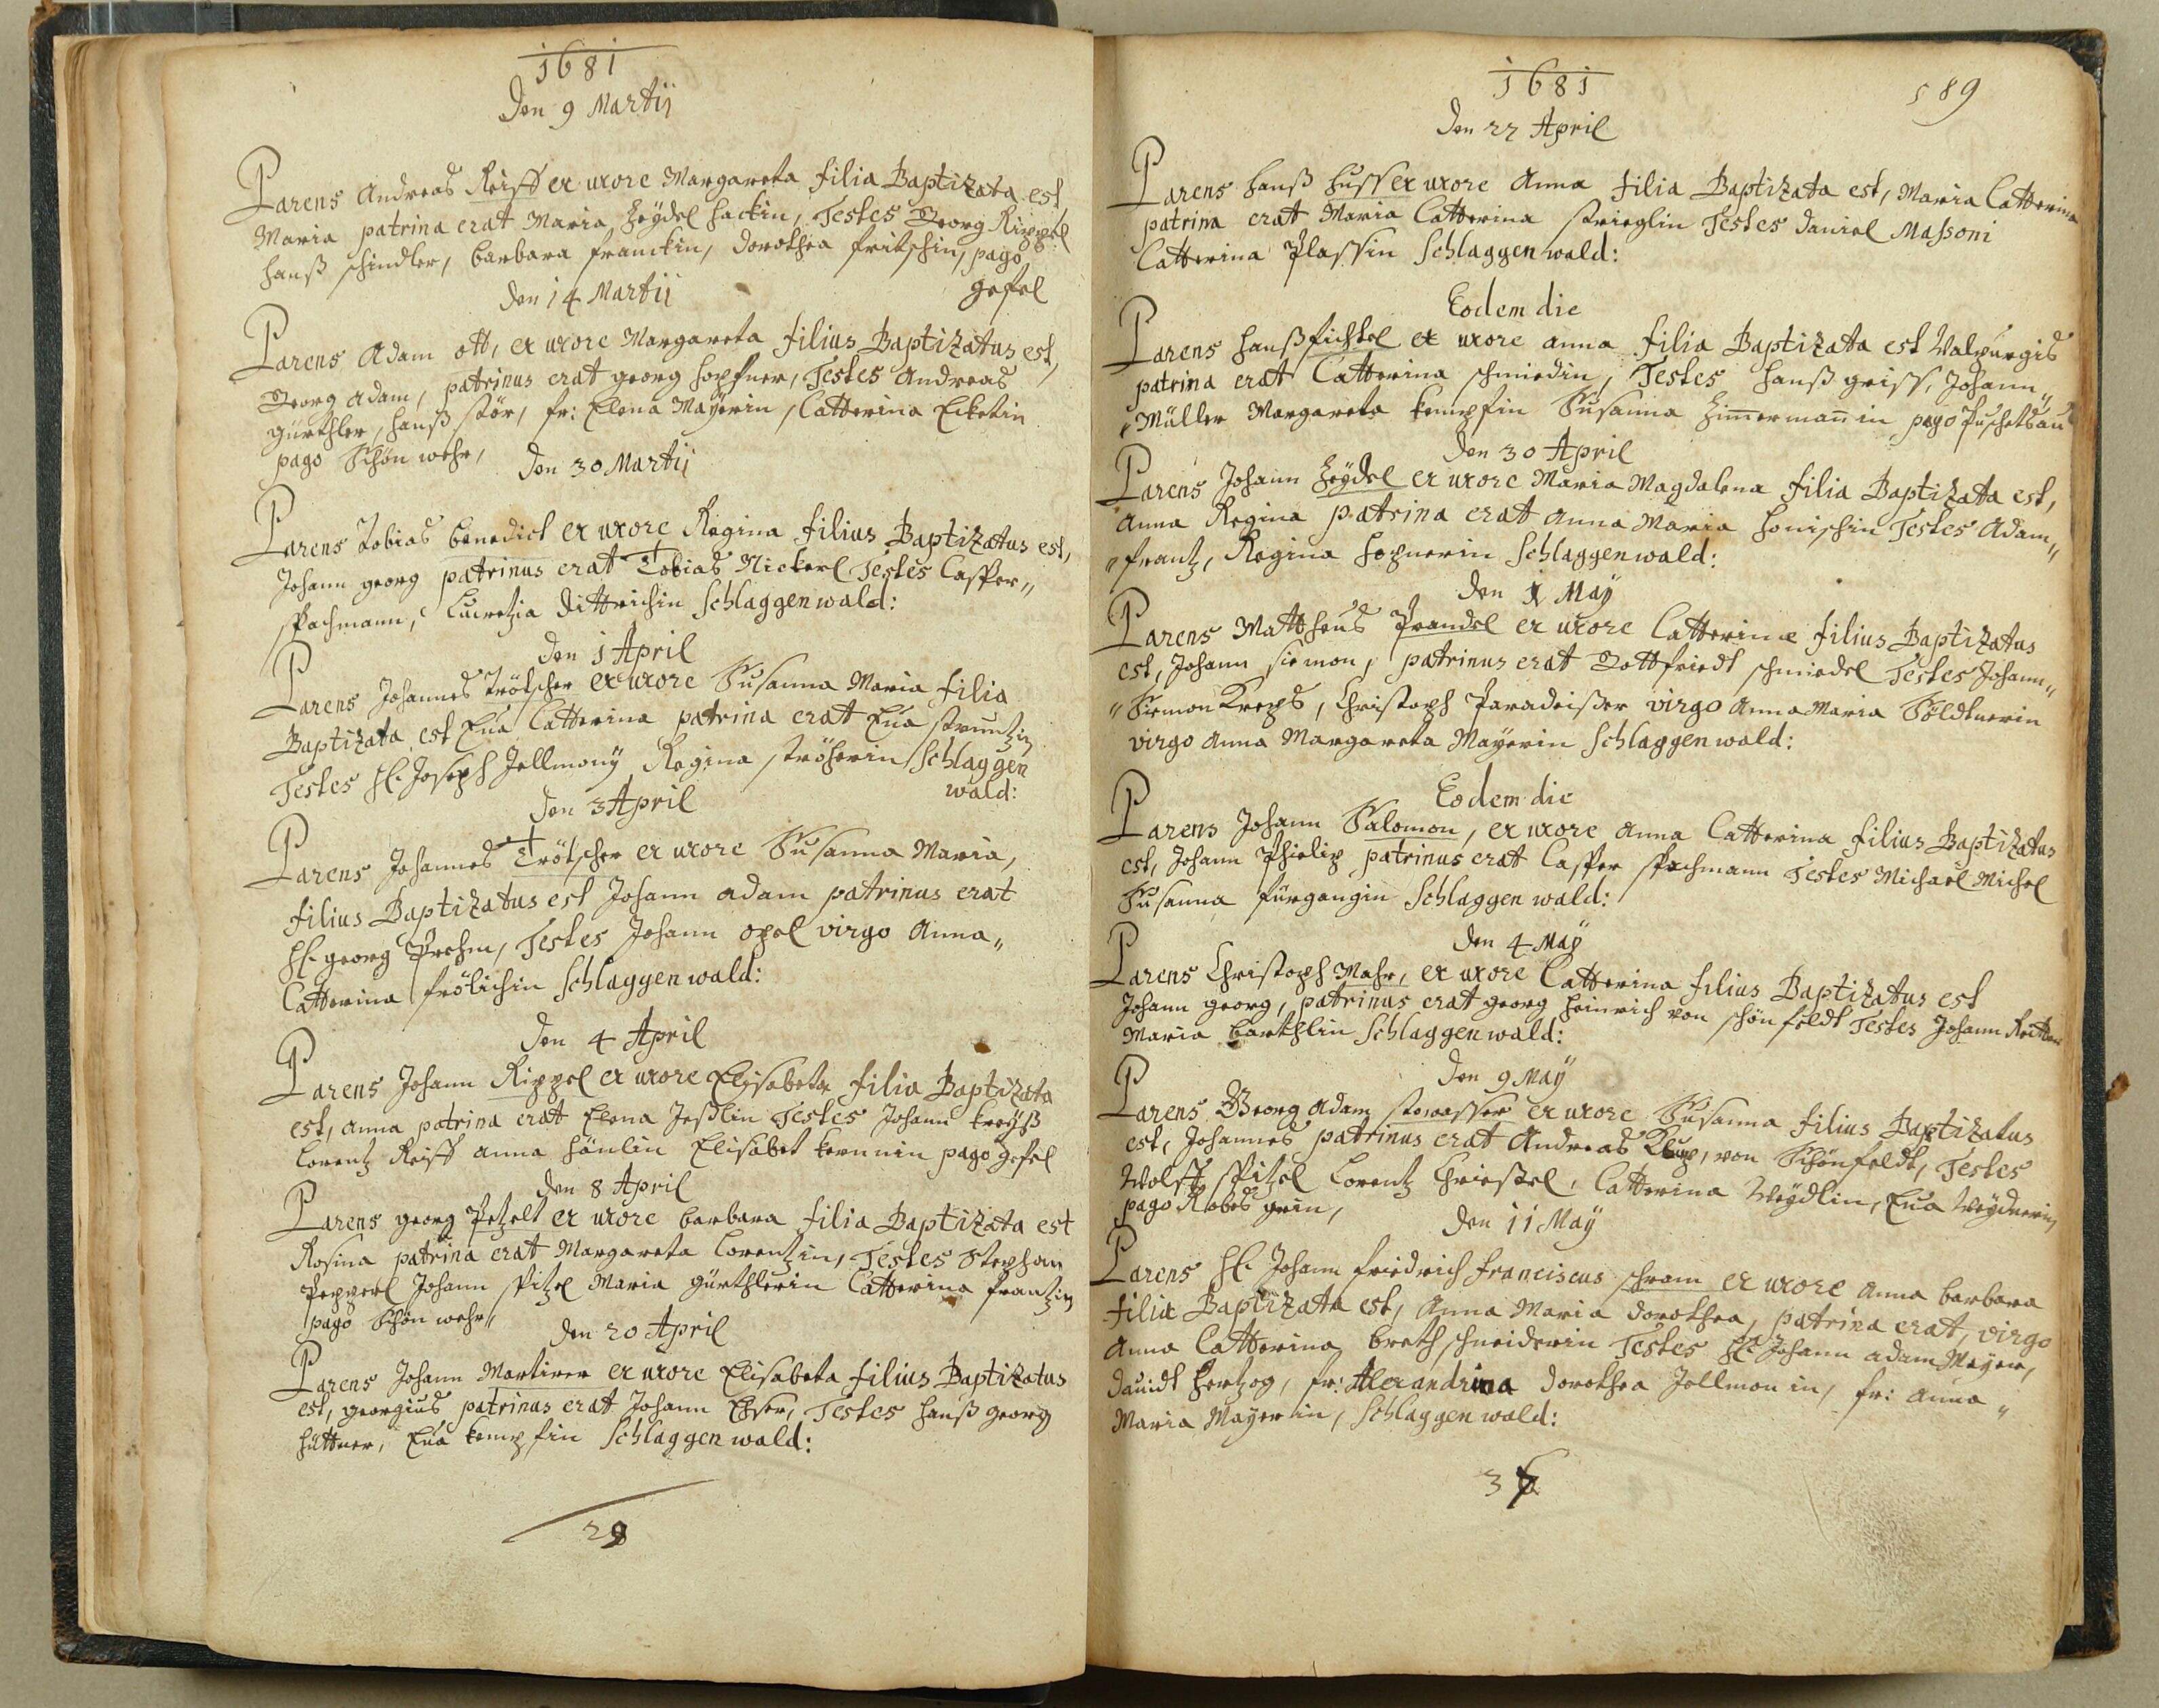 1681
Den 9 Martij
Parens Andreas Reiff ex uxore Margareta filia Baptizata est,
Maria patrina erat Maria Heÿdel hackin, Testes Georg Rippel
Hanß schindler, barbara franckin, dorothea fritschin, pago
gefel
Den 14 Martij
Parens Adam ott, ex uxore Margareta filius Baptizatus est,
Georg Adam, patrinus erat georg hopfner, Testes Andreas
gürthler, hanß stör, fr: Elena Maÿerin, Catterina Ecketin
pago Schön wehr,
Den 30 Martij
Parens Tobias benedict ex uxore Regina filius Baptizatus est,
Johann georg patrinus erat Tobias Nickerl Testes Casper„
spachmann, Lucretzia dittrichin Schlaggenwald:
Den 1 April
Parens Johannes Trötscher ex uxore Susanna Maria filia
Baptizata est Eua Catterina patrina erat Eua struntzin
Testes H. Joseph Jellmonÿ Regina ströherin Schlaggen
wald:
Den 3 April
Parens Johannes Trötscher ex uxore Susanna Maria,
filius Baptizatus est Johann adam patrinus erat
H. georg Prehm, Testes Johann opel virgo Anna„
Catterina frölichin Schlaggenwald:
Den 4 April
Parens Johann Rippel ex uxore Elisabeta filia Baptizata
est, Anna patrina erat Elena Jeßlin Testes Johann kreÿß
Lorentz Reiff anna hänlin Elisabet kernnin pago gefel
Den 8 April
Parens georg Petzelt ex uxore barbara filia Baptizata est
Rosina patrina erat Margareta Lorentzin, Testes Stephan
Pepperl Johann spitzel Maria gürthlerin Catterina frantzin
pago Schön wehr„
Den 20 April
Parens Johann Martirer ex uxore Elisabeta filius Baptizatus
est, georgius patrinus erat Johann Eßer, Testes Hanß georg
hüttner, Eua kempfin Schlaggenwald:
28
1681
589
Den 22 April
Parens Hanß huss ex uxore Anna filia Baptizata est, Maria Catterina
patrina erat Maria Catterina strieglin Testes Daniel Massoni
Catterina Plassin Schlaggenwald:
Eodem die
Parens Hanß fichtel ex uxore anna filia Baptizata est Walpurgis
patrina erat Catterina schmiedin, Testes Hanß griss, Johann„
„Müller Margareta kempfin Susanna Zim̄ermañin pago Puschetsau
Den 30 April
Parens Johann Heÿdel ex uxore Maria Magdalena filia Baptizata est,
Anna Regina patrina erat anna Maria honischin Testes Adam„
„frantz, Regina hopnerin Schlaggenwald:
Den 1 Maÿ
Parens Mattheus Prandel ex uxore Catterinæ filius Baptizatus
est, Johann siemon, patrinus erat Gottfriedt schmiedel Testes Johann„
„Siemon Kreps, Christoph Paradeißer virgo Anna Maria Söldtnerin
virgo Anna Margareta Maÿerin Schlaggenwald:
Eodem die
Parens Johann Salomon, ex uxore Anna Catterina filius Baptizatus
est, Johann Phielip patrinus erat Casper spachmann Testes Michaël Michel
Susanna fürgangin Schlaggenwald:
Den 4 Maÿ
Parens Christoph Mahr, ex uxore Catterina filius Baptizatus est
Johann georg, patrinus erat georg heinrich von schönfeldt Testes Johann
Maria barthlin Schlaggenwald:
Den 9 Maÿ
Parens Georg Adam stowasser ex uxore Susanna filius Baptizatus
est, Johannes patrinus erat Andreas von Schönfeldt, Testes
Wolff spitzel Lorentz Christel, Catterina Weÿdlin, Eua Weÿdnerin,
pago Robes grin,
Den 11 Maÿ
Parens H. Johann friedrich franciscus schram ex uxore Anna barbara
filia Baptizata est, Anna Maria dorothea, patrina erat, virgo
Anna Catterina brethschneiderin Testes H. Johann adam Maÿer,
dauidt Hertzog, fr: Alexandrina dorothea Jellmonin, fr: Anna„
Maria Maÿerin, Schlaggenwald: